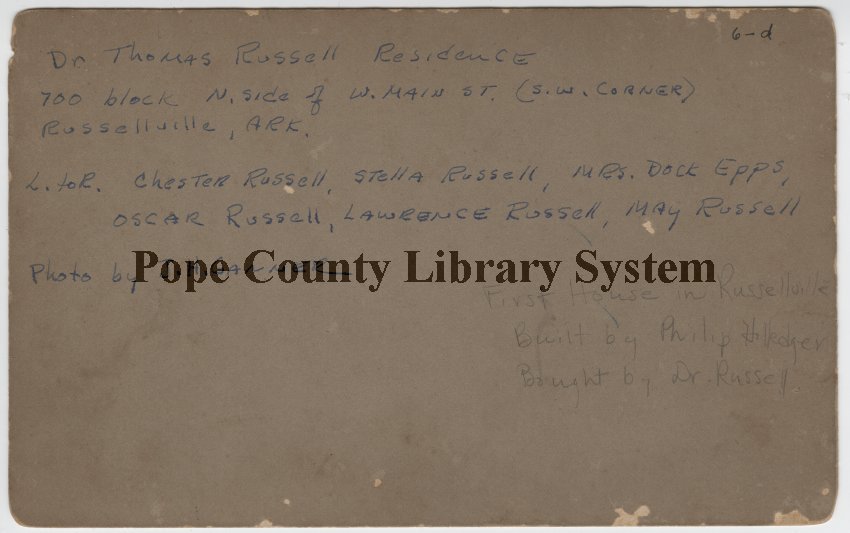 6-d
Dr Thomas Russell Residence
700 block N. side of W. Main St. (S.W. Corner)
Russellville, Ark.
L. to R. Chester Russell, Stella Russell, Mrs. Dock Epps,
Oscar Russell, Lawrence Russell, May Russell
Photo by
Pope County Library System
First House in Russellville
Built by Philip
Bought by Dr. Russell.